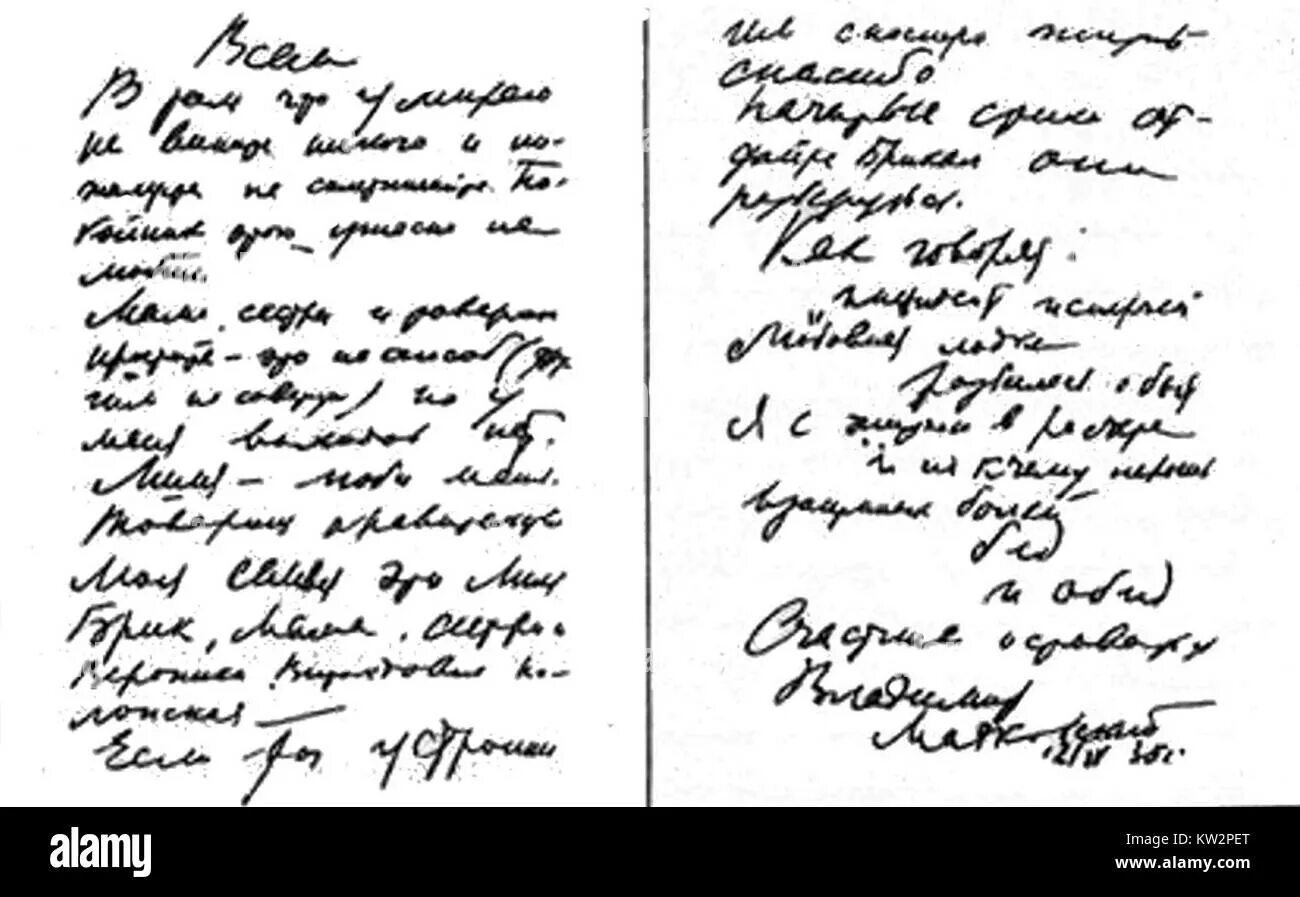 Всем
В том что умираю
не вините никого и по-
жалуйста не сплетничайте. По-
койник этого ужасно не
любил.
Мама, сестры и товарищи
простите – это не способ (дру
гим не советую) но у
меня выходов нет.
Лиля – люби меня.
Товарищ правительство
моя семья это Лиля
Брик, мама, сестры и
Вероника Витольдовна По-
лонская —
Если ты устроишь
им сносную жизнь
спасибо
Начатые стихи от-
дайте Брикам они
разберутся.
Как говорят:
инцидент исперчен
Любовная лодка
разбилась о быт
Я с жизнью в расчете
и не к чему перечень
взаимных болей
бед
и обид
Счастливо оставаться
Владимир
Маяковский
12/IV 30 г.
alamy
Image ID: KW2PET
www.alamy.com